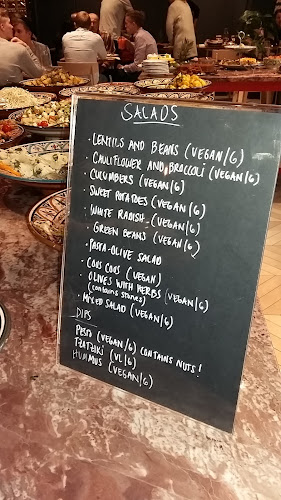 SALADS
· LENTILS AND BEANS (VEGAN/G)
· CAULIFLOWER AND BROCCOLI (VEGAN/G)
· CUCUMBERS (VEGAN/G)
· SWEET POTATOES (VEGAN/G)
· WHITE RADISH (VEGAN/G)
· GREEN BEANS (VEGAN/G)
· PASTA-OLIVE SALAD
· COUS COUS (VEGAN)
· OLIVES WITH HERBS (VEGAN/G)
(contains stones)
· MIXED SALAD (VEGAN/G)
DIPS
PESTO (VEGAN/G) CONTAINS NUTS!
TZATZIKI (VL/G)
HUMMUS (VEGAN/G)